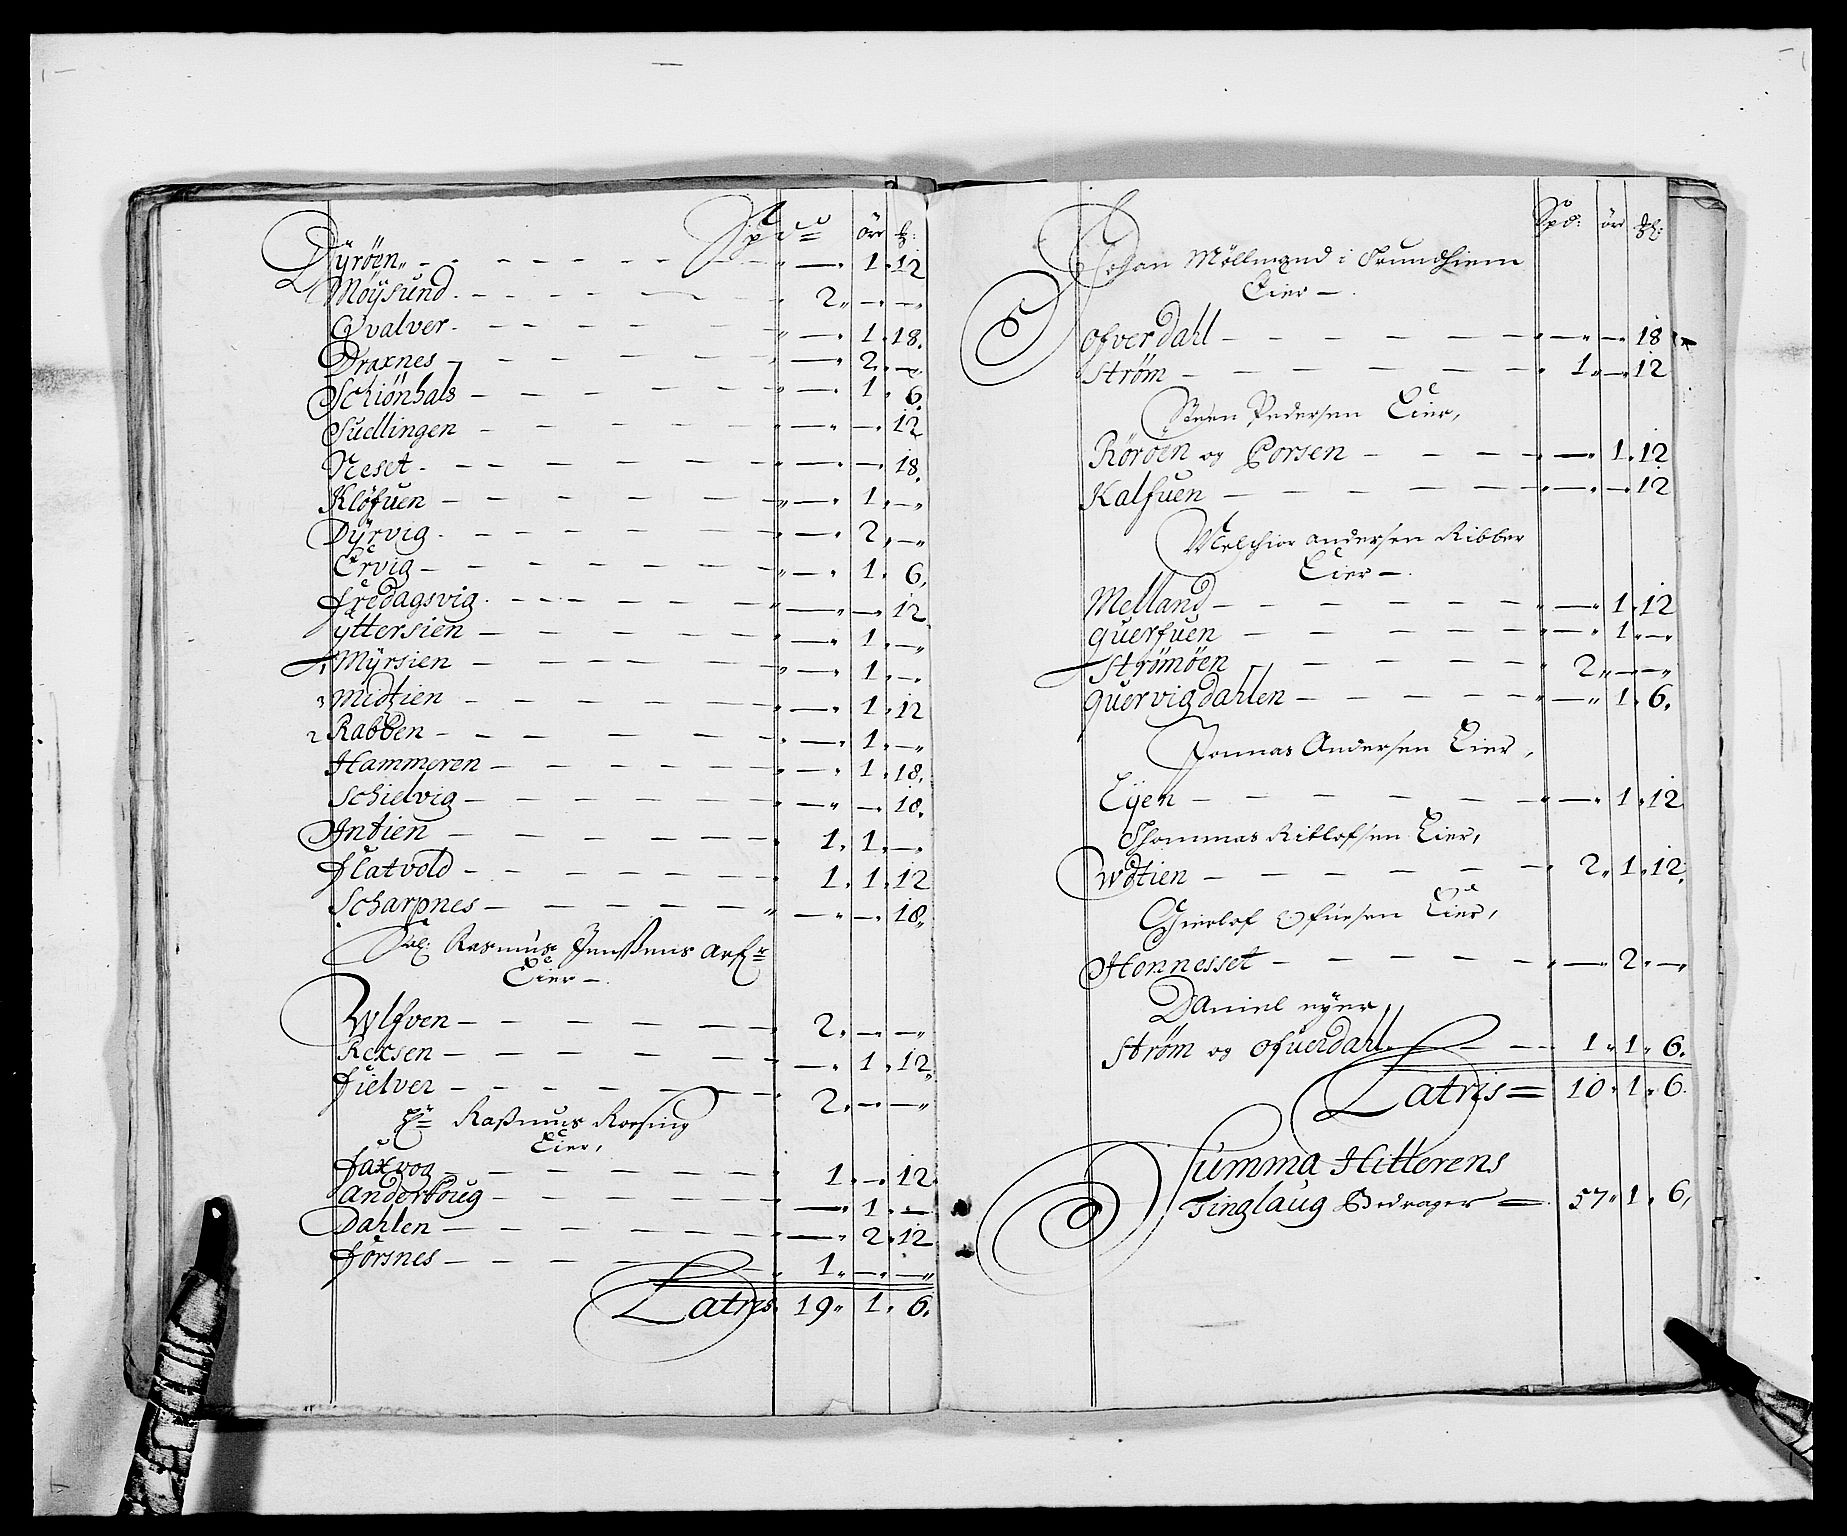 Spd öre ℔:
Dyröen " — " 1 " 12
Moysund 2 " — " — "
Qvalver " — " 1 " 18
Draxnes " — " 2 " — "
Schiönhals " — " 1 " 6
Sudlingen " — " — " 12
Neset " — " — " 18
Klöfuen " — " 1 " — "
Dyrvig " — " 2 " — "
Ervig " — " 1 " 6
Fredagsvig " — " — " 12
Yttersien " — " 1 " — "
1 Myrsien " — " 1 " — "
3 Midtien " — " 1 " 12
2 Rabben " — " 1 " — "
Hammeren " — " 1 " 18
Schielvig " — " — " 18
Indien 1 " 1 " — "
Flatvold 1 " 1 " 12
Scharpnes " — " — " 18
Sal: Rasmus Jenssens arf:
Eier —
Wlfven 2 " — " — "
Rexsen — " 1 " 12
Fielver 2 " — " — "
Rasmus Roesing
Eier,
Faxvog 1 " — " 12
Anderskoug — " 1 " —
Dahlen — " 2 " 12
Forsnes 1 " — " — "
Latris 19 " 1 " 6
Spd: öre ℔:
Johan Möllmand i Trundhiem
Eier —
Ofverdahl " — " — " 18
Ström 1 " — " 12
Steen Pedersen Eier,
Röröen og Porsen " — " 1 " 12
Kalfuen " — " — " 12
Melchior Andersen Ribber
Eier —
Melland " — " 1 " 12
Querfuen " — " 1 " — "
Strömöen 2 " — " — "
Quervigdahlen " — " 1 " 6
Jonnas Andersen Eier,
Eyen " — " 1 " 12
Thommas Ritlofsen Eier,
Wdtien 2 " 1 " 12
Eier,
Honnesset " — " 2 " — "
Daniel eyer,
Ström og Ofuerdahl 1 " 1 " 6
Latris = 10 " 1 " 6
Summa Hitterens
Tinglaug Bedrager = 57 " 1 " 6